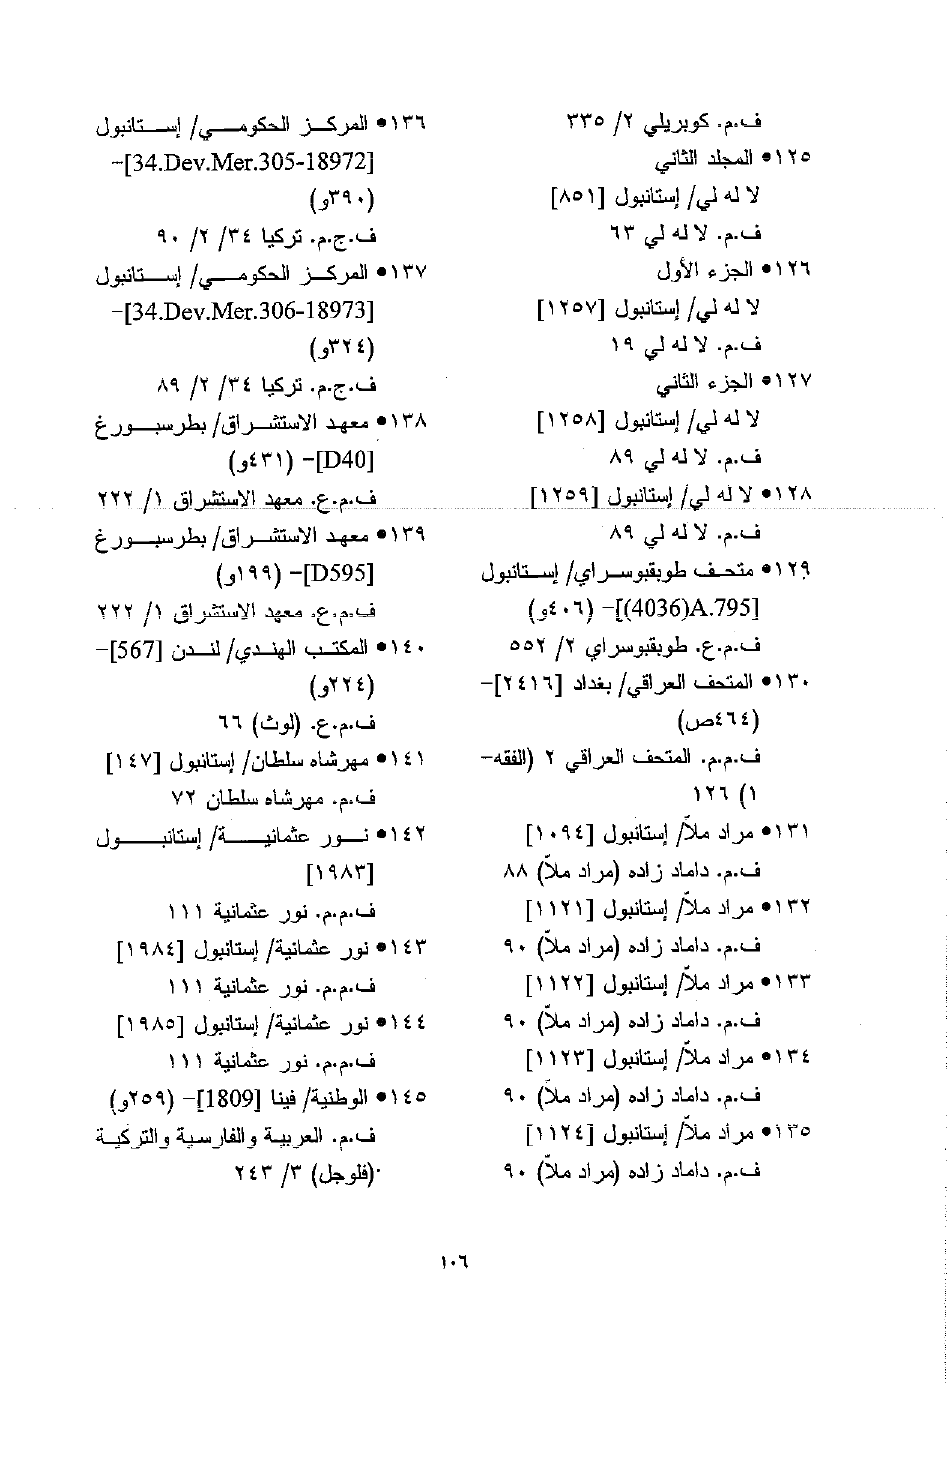 ف.م. كوبريلي ٢/ ٣٣٥
١٢٥• المجلد الثاني
لا له لي/ إستانبول [٨٥١]
ف.م. لا له لي ٦٣
١٢٦• الجزء الأول
لا له لي/ إستانبول [١٢٥٧]
ف.م. لا له لي ١٩
١٢٧• الجزء الثاني
لا له لي/ إستانبول [١٢٥٨]
ف.م. لا له لي ٨٩
١٢٨• لا له لي/ إستانبول [١٢٥٩]
ف.م. لا له لي ٨٩
١٢٩• متحف طوبقبوسراي/ إستانبول
[4036)A.795)]– (٤٠٦و)
ف.م.ع. طوبقبوسراي ٢/ ٥٥٢
١٣٠• المتحف العراقي/ بغداد [٢٤١٦]–
(٤٦٤ص)
ف.م.م. المتحف العراقي ٢ (الفقه–
١) ١٢٦
١٣١• مراد ملاّ/ إستانبول [١٠٩٤]
ف.م. داماد زاده (مراد ملاّ) ٨٨
١٣٢• مراد ملاّ/ إستانبول [١١٢١]
ف.م. داماد زاده (مراد ملاّ) ٩٠
١٣٣• مراد ملاّ/ إستانبول [١١٢٢]
ف.م. داماد زاده (مراد ملاّ) ٩٠
١٣٤• مراد ملاّ/ إستانبول [١١٢٣]
ف.م. داماد زاده (مراد ملاّ) ٩٠
١٣٥• مراد ملاّ/ إستانبول [١١٢٤]
ف.م. داماد زاده (مراد ملاّ) ٩٠
١٣٦• المركز الحكومي/ إستانبول
[34.Dev.Mer.305-18972]–
(٣٩٠و)
ف.ج.م. تركيا ٣٤/ ٢/ ٩٠
١٣٧• المركز الحكومي/ إستانبول
[34.Dev.Mer.306-18973]–
(٣٢٤و)
ف.ج.م. تركيا ٣٤/ ٢/ ٨٩
١٣٨• معهد الاستشراق/ بطرسبورغ
[D40]– (٤٣١و)
ف.م.ع. معهد الاستشراق ١/ ٢٢٢
١٣٩• معهد الاستشراق/ بطرسبورغ
[D595]– (١٩٩و)
ف.م.ع. معهد الاستشراق ١/ ٢٢٢
١٤٠• المكتب الهندي/ لندن [567]–
(٢٢٤و)
ف.م.ع. (لوث) ٦٦
١٤١• مهرشاه سلطان/ إستانبول [١٤٧]
ف.م. مهرشاه سلطان ٧٢
١٤٢• نور عثمانية/ إستانبول
[١٩٨٣]
ف.م.م. نور عثمانية ١١١
١٤٣• نور عثمانية/ إستانبول [١٩٨٤]
ف.م.م. نور عثمانية ١١١
١٤٤• نور عثمانية/ إستانبول [١٩٨٥]
ف.م.م. نور عثمانية ١١١
١٤٥• الوطنية/ فينا [1809]– (٢٥٩و)
ف.م. العربية والفارسية والتركية
(فلوجل) ٣/ ٢٤٣
١٠٦